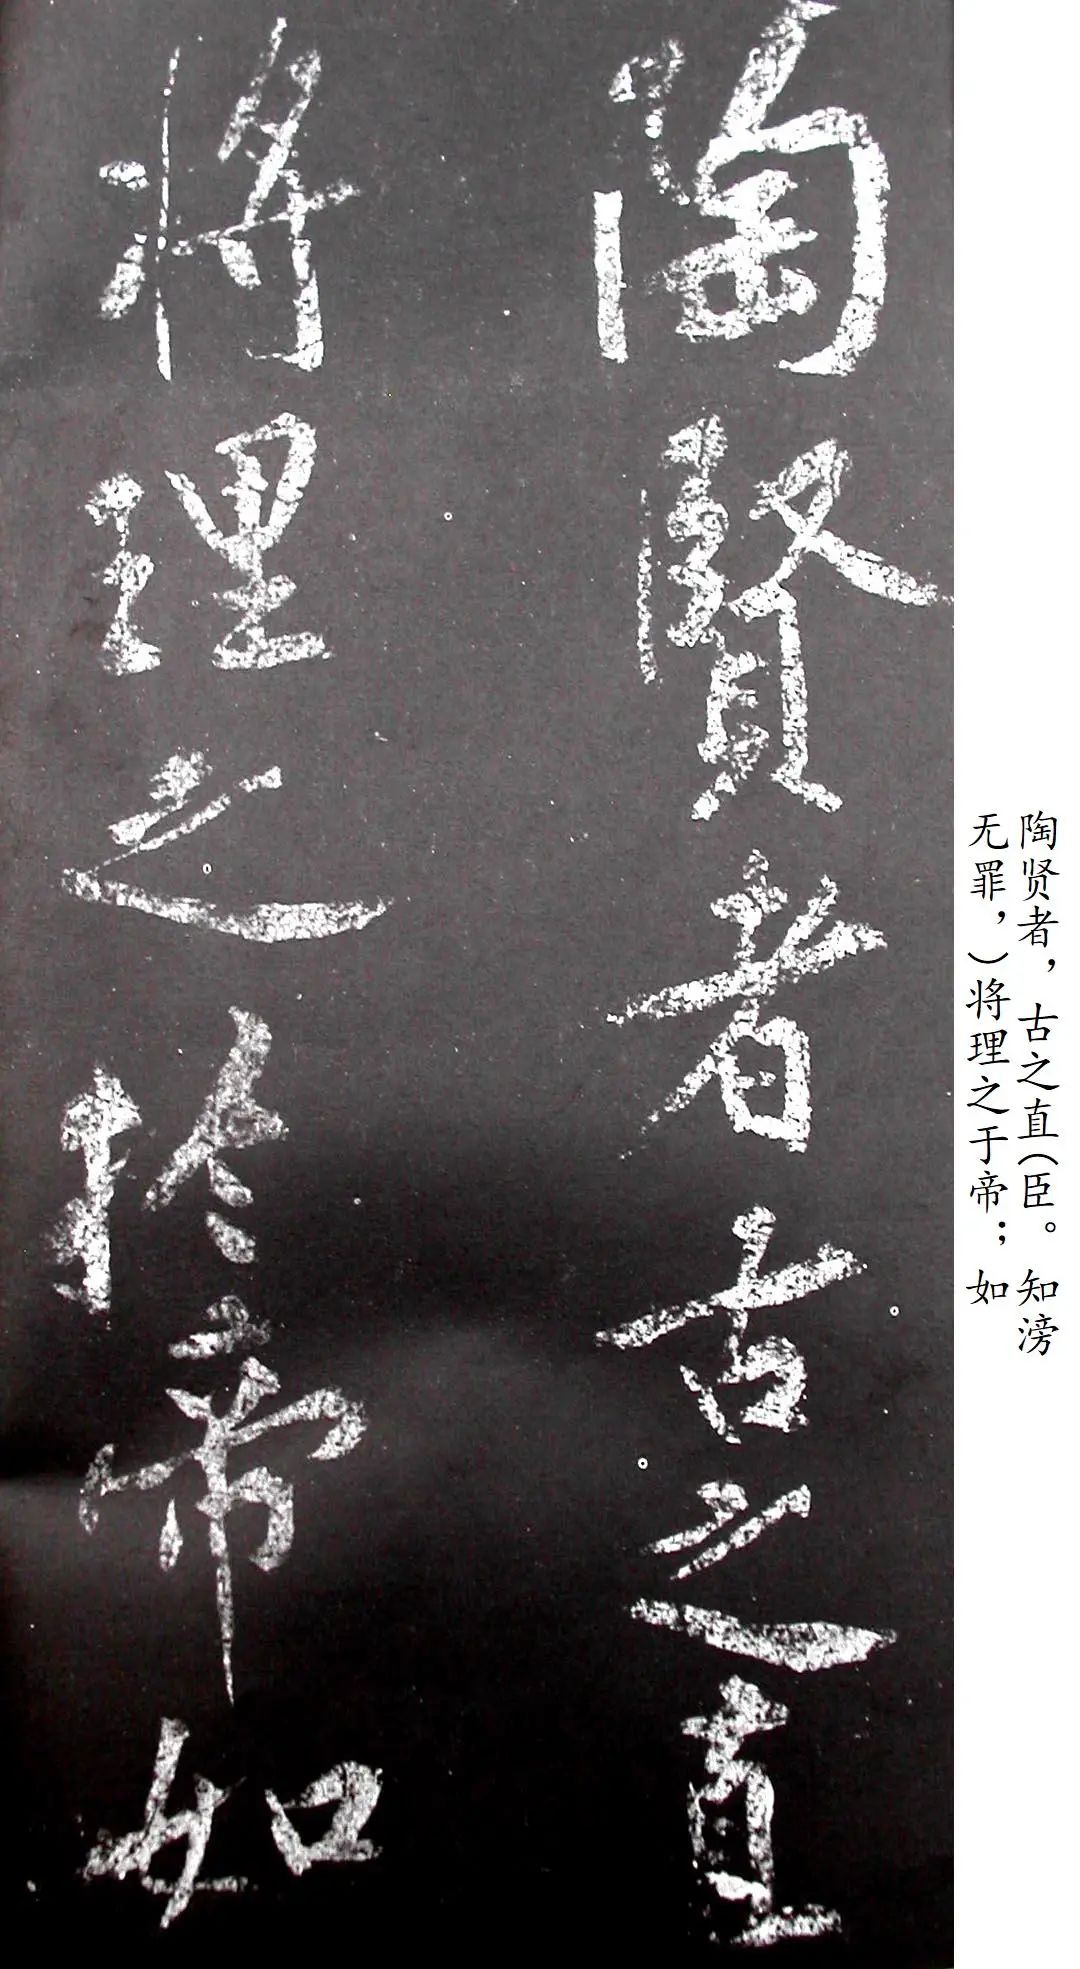 陶賢者古之直
将理之於帝如
陶贤者，古之直（臣。知滂
无罪，）将理之于帝；如